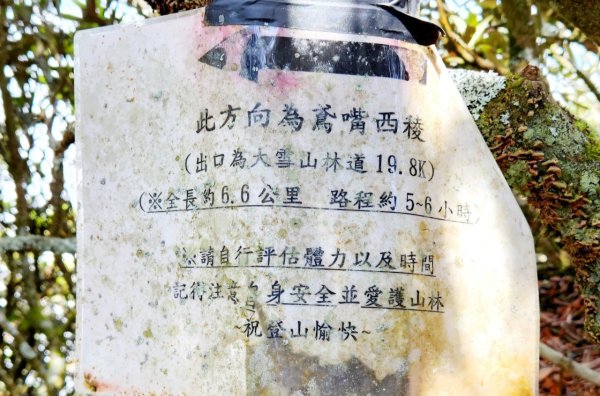 此方向為鳶嘴西稜
(出口為大雪山林道 19.8K)
(※全長約6.6公里 路程約5~6小時)
※請自行評估體力以及時間
記得注意自身安全並愛護山林
~祝登山愉快~